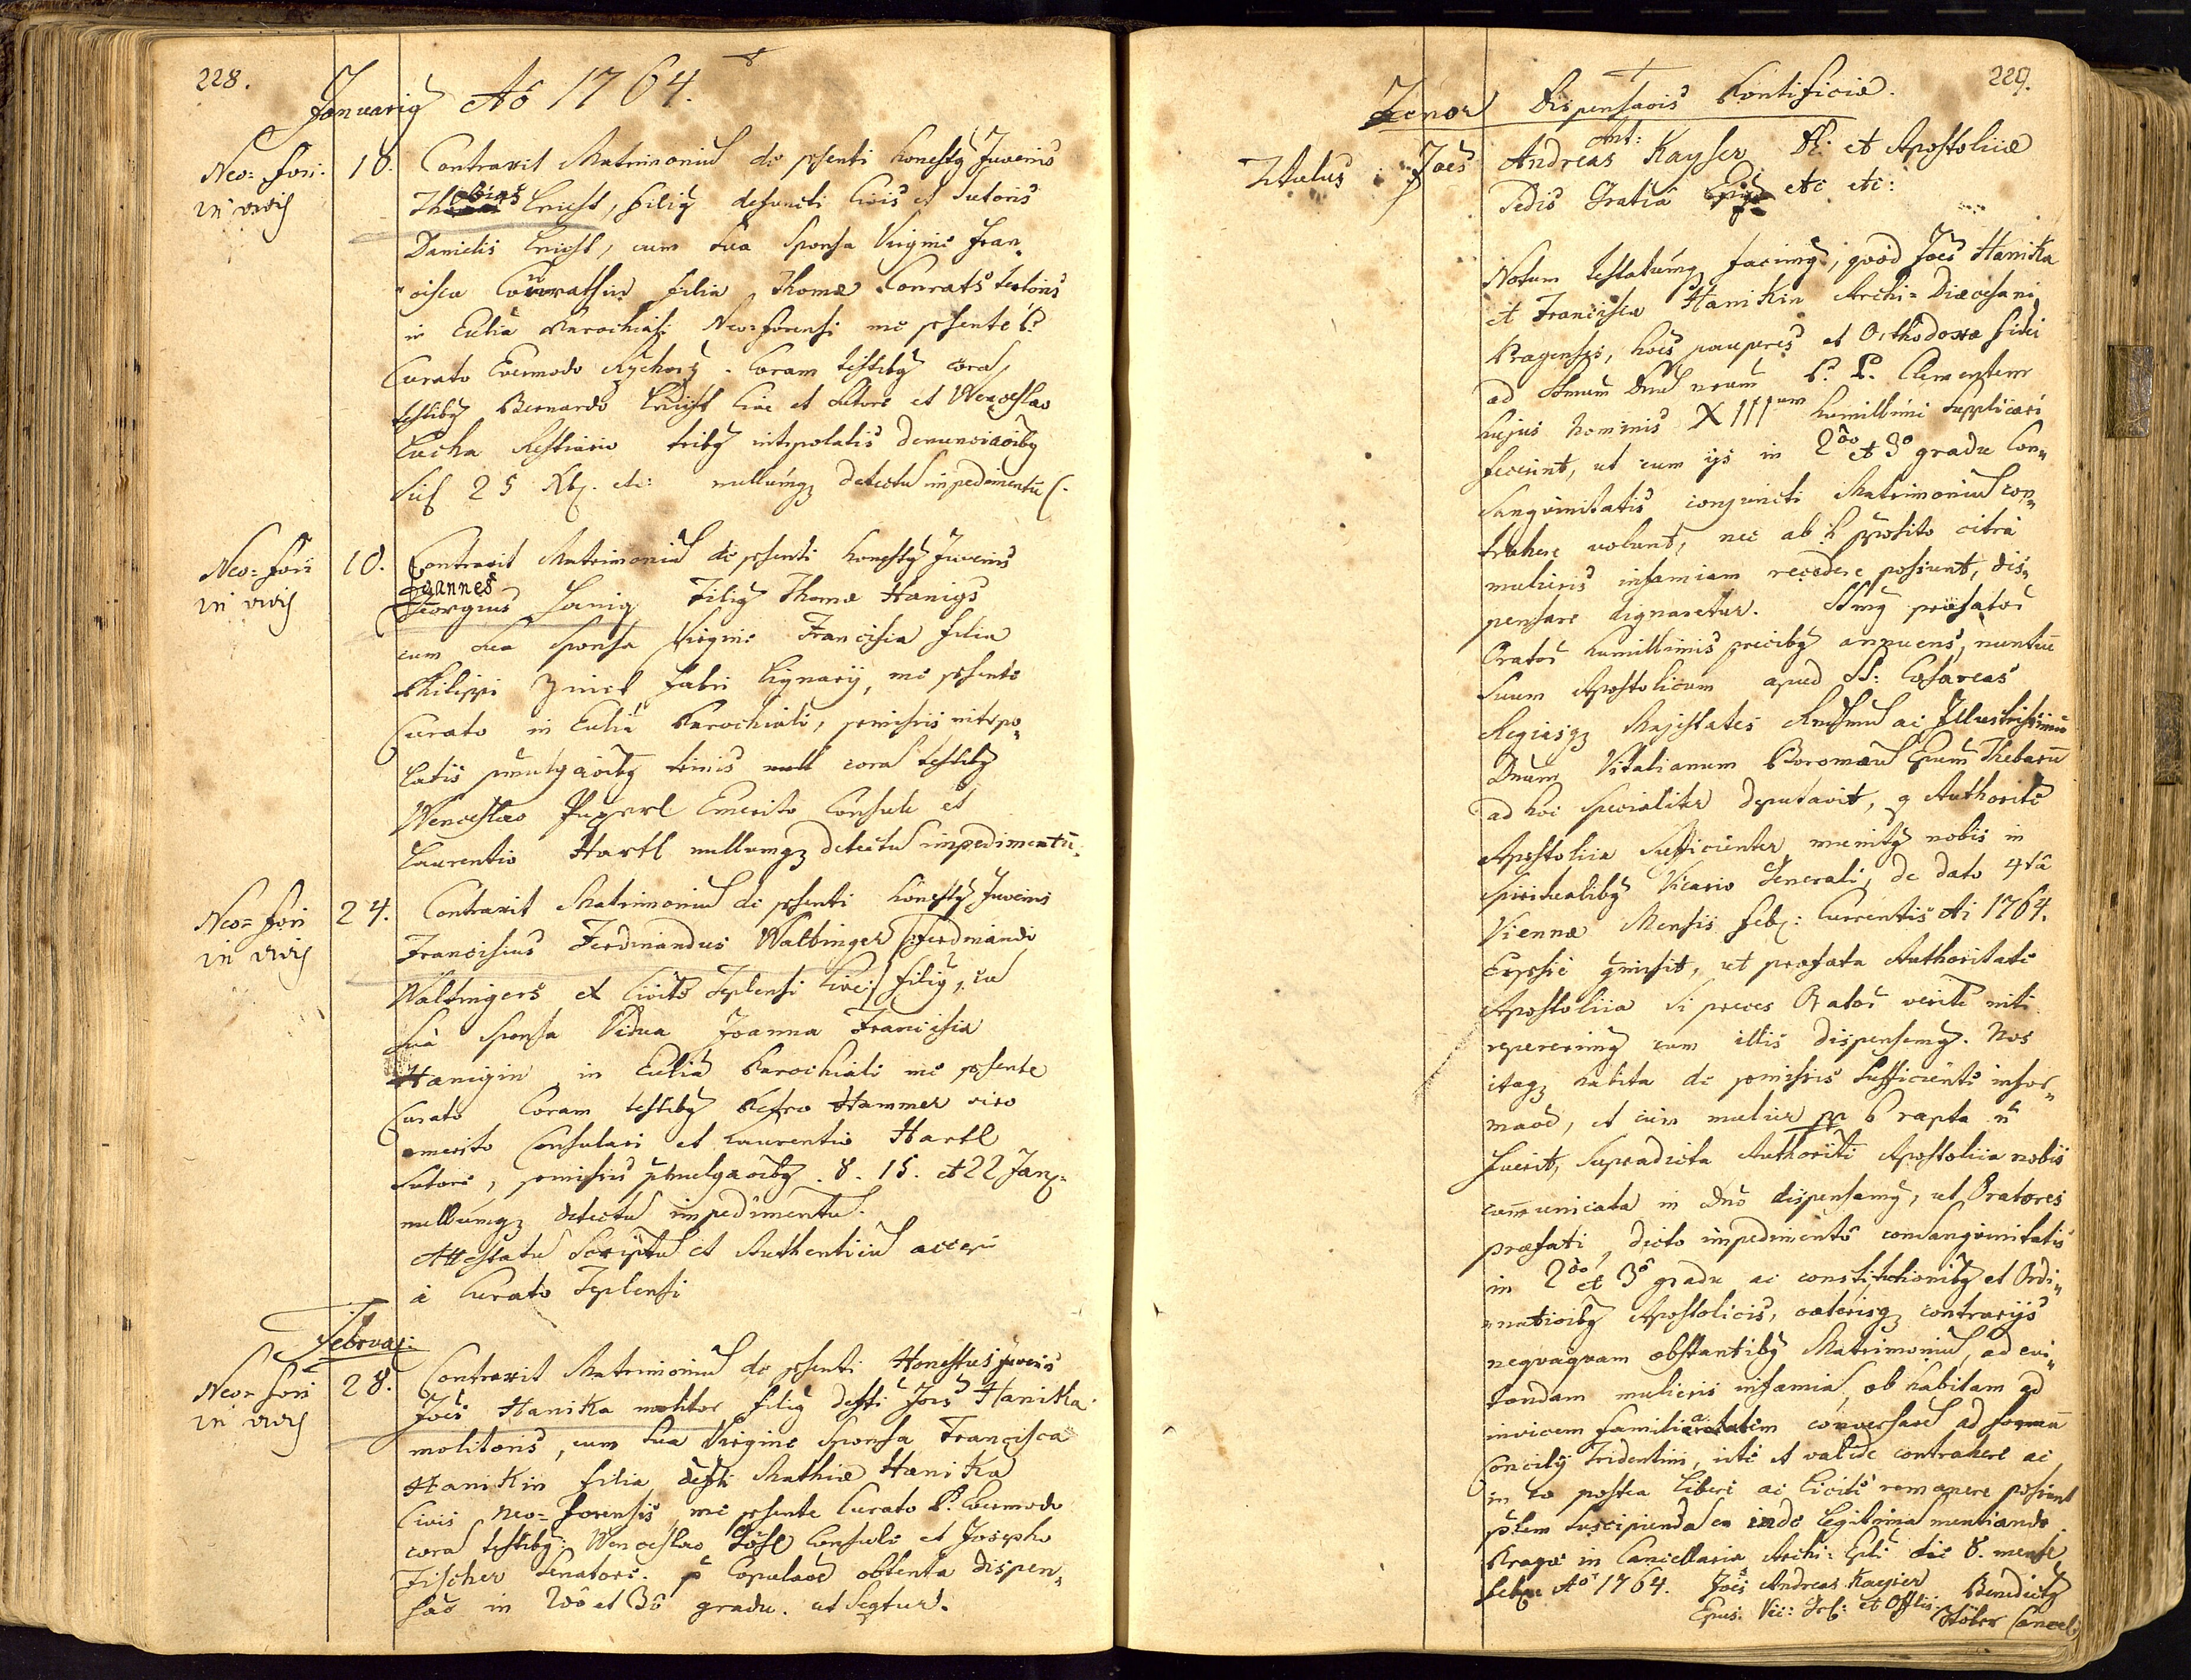 228.
Januarig Aô 1764.
Neo: Fori 18. Contraxit Matrimoniu de psenti honestg Juvenis
in civis Thobias Knicht, filig defuncti Civis et Sutoris
Danielis Knicht, cum sua Sponsa Virgine Fran,
cisca Conrathin filia Thomæ Conrats textoris
in Ecclia Parochiali Neo-forensi me psente P.
Curato Evermodo Rychorz. Coram testibg cora
testibg Bernardo Knicht Cive et Sutore et Wenceslao
Cucha Restiario tribg intepolatis denunciaoibg
Sic 25 Xb. etc: nullumq detectu impedimentu
Neo= Fori 18. Contraxit Matrimoniu de psenti honestg Juvenis
Joannes
Georgius Hanig Filig Thomæ Hanigs
cum sua sponsa Virgine Francisca filia
Philippi Zinck fabri lignarij, me psente
Curato in Ecclia Parochiali, pmissis intepo,
latis pmulgaoibg trinis cora testibg
Wenceslao Pugerl Emerito Consule et
Laurentio Hartl nullumq detectu impedimentu.
Neo= Fori 24. Contraxit Matrimoniu de psenti honestg Juvenis
Franciscus Ferdinandus Waltinger Ferdinandi
Waltingers et Civits Teplensi Civis filig, cu
sua sponsa Vidua Joanna Francisca
Hanigin in Ecclia Parochiali me psente
Curato Coram testibg Petro Hammer viro
emerito Consulari et Laurentio Hartl
Sutore, pmissis pmulgaoibg. 8. 15. et 22 Jan.
nullumq detectu impedimentu.
Attestatu Scriptu et Authenticu accepi
à Curato Teplensi
Februar:
Neo= Fori 28. Contraxit Matrimoniu de psenti Honestus Juvenis
Joes Hanika molitor filig defti Jois Hanika
molitoris, cum sua Virgine Sponsa Francisca
Hanikin filia defti Mathiæ Hanika
Civis Neo=forensis me psente Curato P. Evermodo
cora testibg: Wenceslao Tösl Consule et Josepho
Fischer Senatore. p Copulaoe obtenta dispen,
sao in 2do et 3o gradu. ut Seqtur.
229.
Tenor Dispensaois Pontificiæ.
Titulus Joes Ant: Andreas Kayser D: et Apostolicæ
Sedis Gratiâ Epus etc etc:
Notum testatumq facimg, quod Joes Hanika
et Francisca Hanikin Archi=Diæcesani
Pragenses, hoies pauperes et Orthodoxæ fidei
ad Ssmum Dnu nrum P. P. Clementem
hujus nominis XIIIum humillimi supplicari
fecerint, ut cum ijs in 2do et 3o gradu Con,
sanguinitatis conjuncti Matrimoniu con,
trahere volunt, nec ab h pposito citra
mulieris infamiam recedere possunt, dis,
pensare dignaretur. Ssmg præfator
Orator humillimis precibg annuens, nuntiu
suum Apostolicum apud SS: Cæsareas
Regiasq Majestates Rndsmu ac Illustrissimu
Dnum Vitalianum Boromæu Epum Thebaru
ad hoc specialiter deputavit, q Authorite
Apostolica Sufficienter munitg nobis in
spiritualibg Vicario Generali, de dato 4tâ
Viennæ Mensis Feb: Currentis Ai 1764.
Expsse pmisit, ut præfata Authoritate
Apostolica si preces Orator verite niti
repererimg cum illis dispensemg. Nos
itaq habita de pmissis Sufficienti infor,
maoe, et cum mulier rapta n
fuerit, supradicta Authorite Apostolica nobis
communicata in Dno dispensamg, ut Oratores
præfati, dicto impedimento consanguinitatis
in 2do et 3o gradu ac constitutionibg et Ordi,
nationibg Apostolicis, cæterisq contrarijs
nequaquam obstantibg Matrimoniu, ad evi,
tandam mulieris infamia, ob habitam ad
invicem familiaritatem conversaoe ad forma
Concilij Tridentini, rite et valide contrahere ac
in eo postea libere ac licite remanere possint
plem suscipienda ex inde legitima nuntiando
Pragæ in Cancellaria Archi: Epli die 8. mense
Feb. Ao 1764. Joes Andreas Kayser Benedictg
Epus. Vic: Grl: et Offlis. Stöber Cancel: